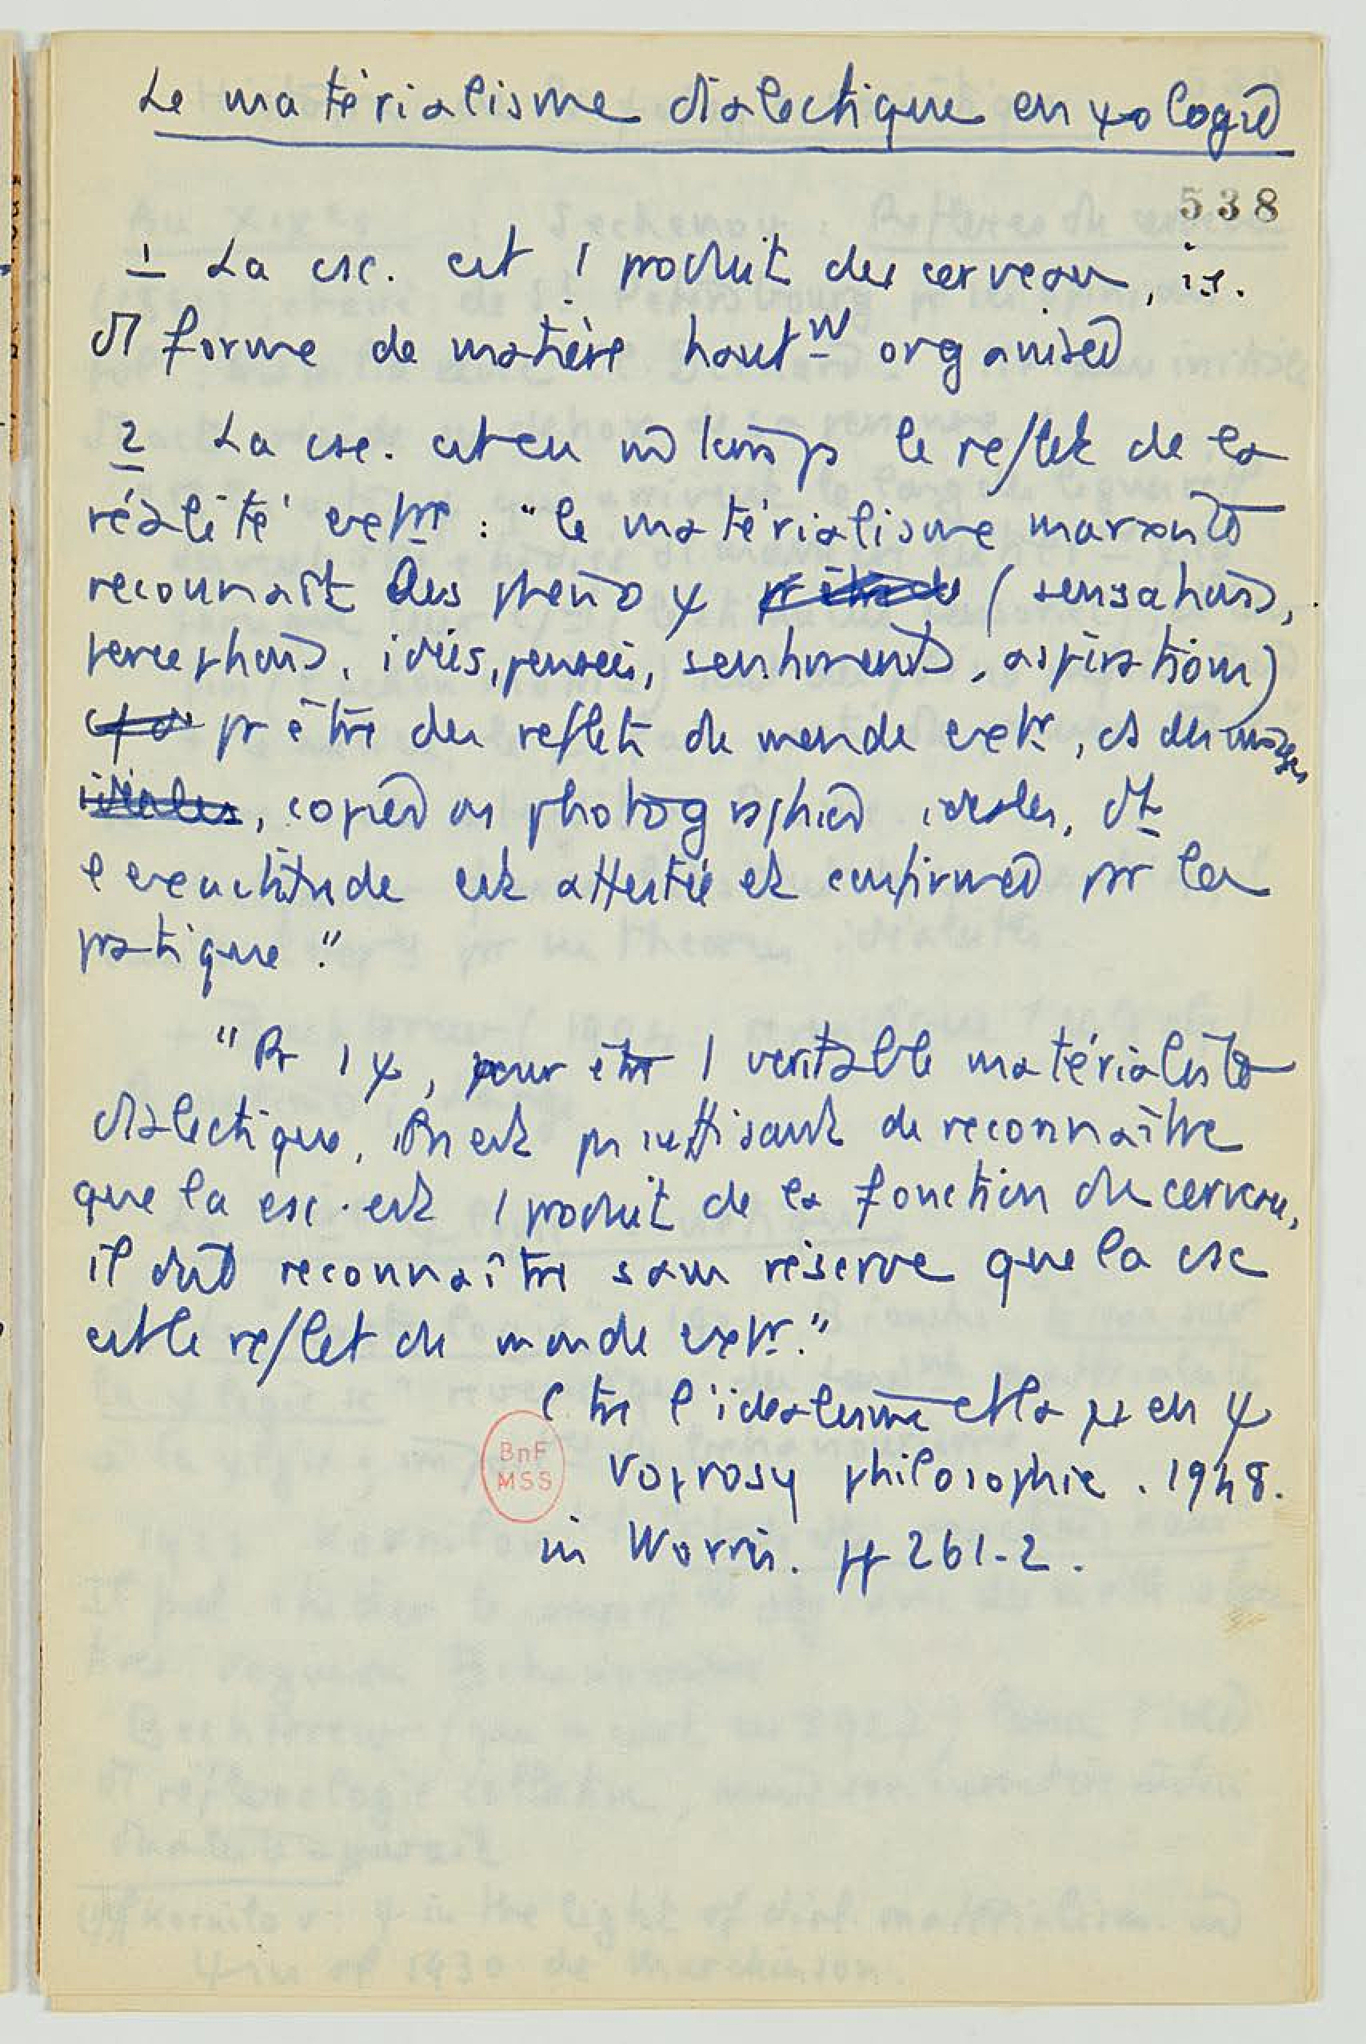 Le matérialisme dialectique en ψologie
538
1 La csc. est 1 produit du cerveau, i.e.
d'1 forme de matière hautᵐ organisée
2 La csc. est en m̂ temps le reflet de la
réalité extʳᵉ : "le matérialisme marxiste
reconnaît les phéno ψ (sensations,
perceptions, idées, pensées, sentiments, aspirations)
pr être des reflets du monde extʳ, et des images
idéales, copies ou photographies idéales, dt
l'exactitude est attestée et confirmée pr la
pratique."
"Pr 1 ψ, pour être 1 véritable matérialiste
dialectique, il n'est pas suffisant de reconnaître
que la csc. est 1 produit de la fonction du cerveau,
il doit reconnaître sans réserve que la csc
est le reflet du monde extʳ."
Ctre l'idéalisme et la en ψ
Voprosy philosophie. 1948.
in Wortis. pp 261-2.
BnF
MSS